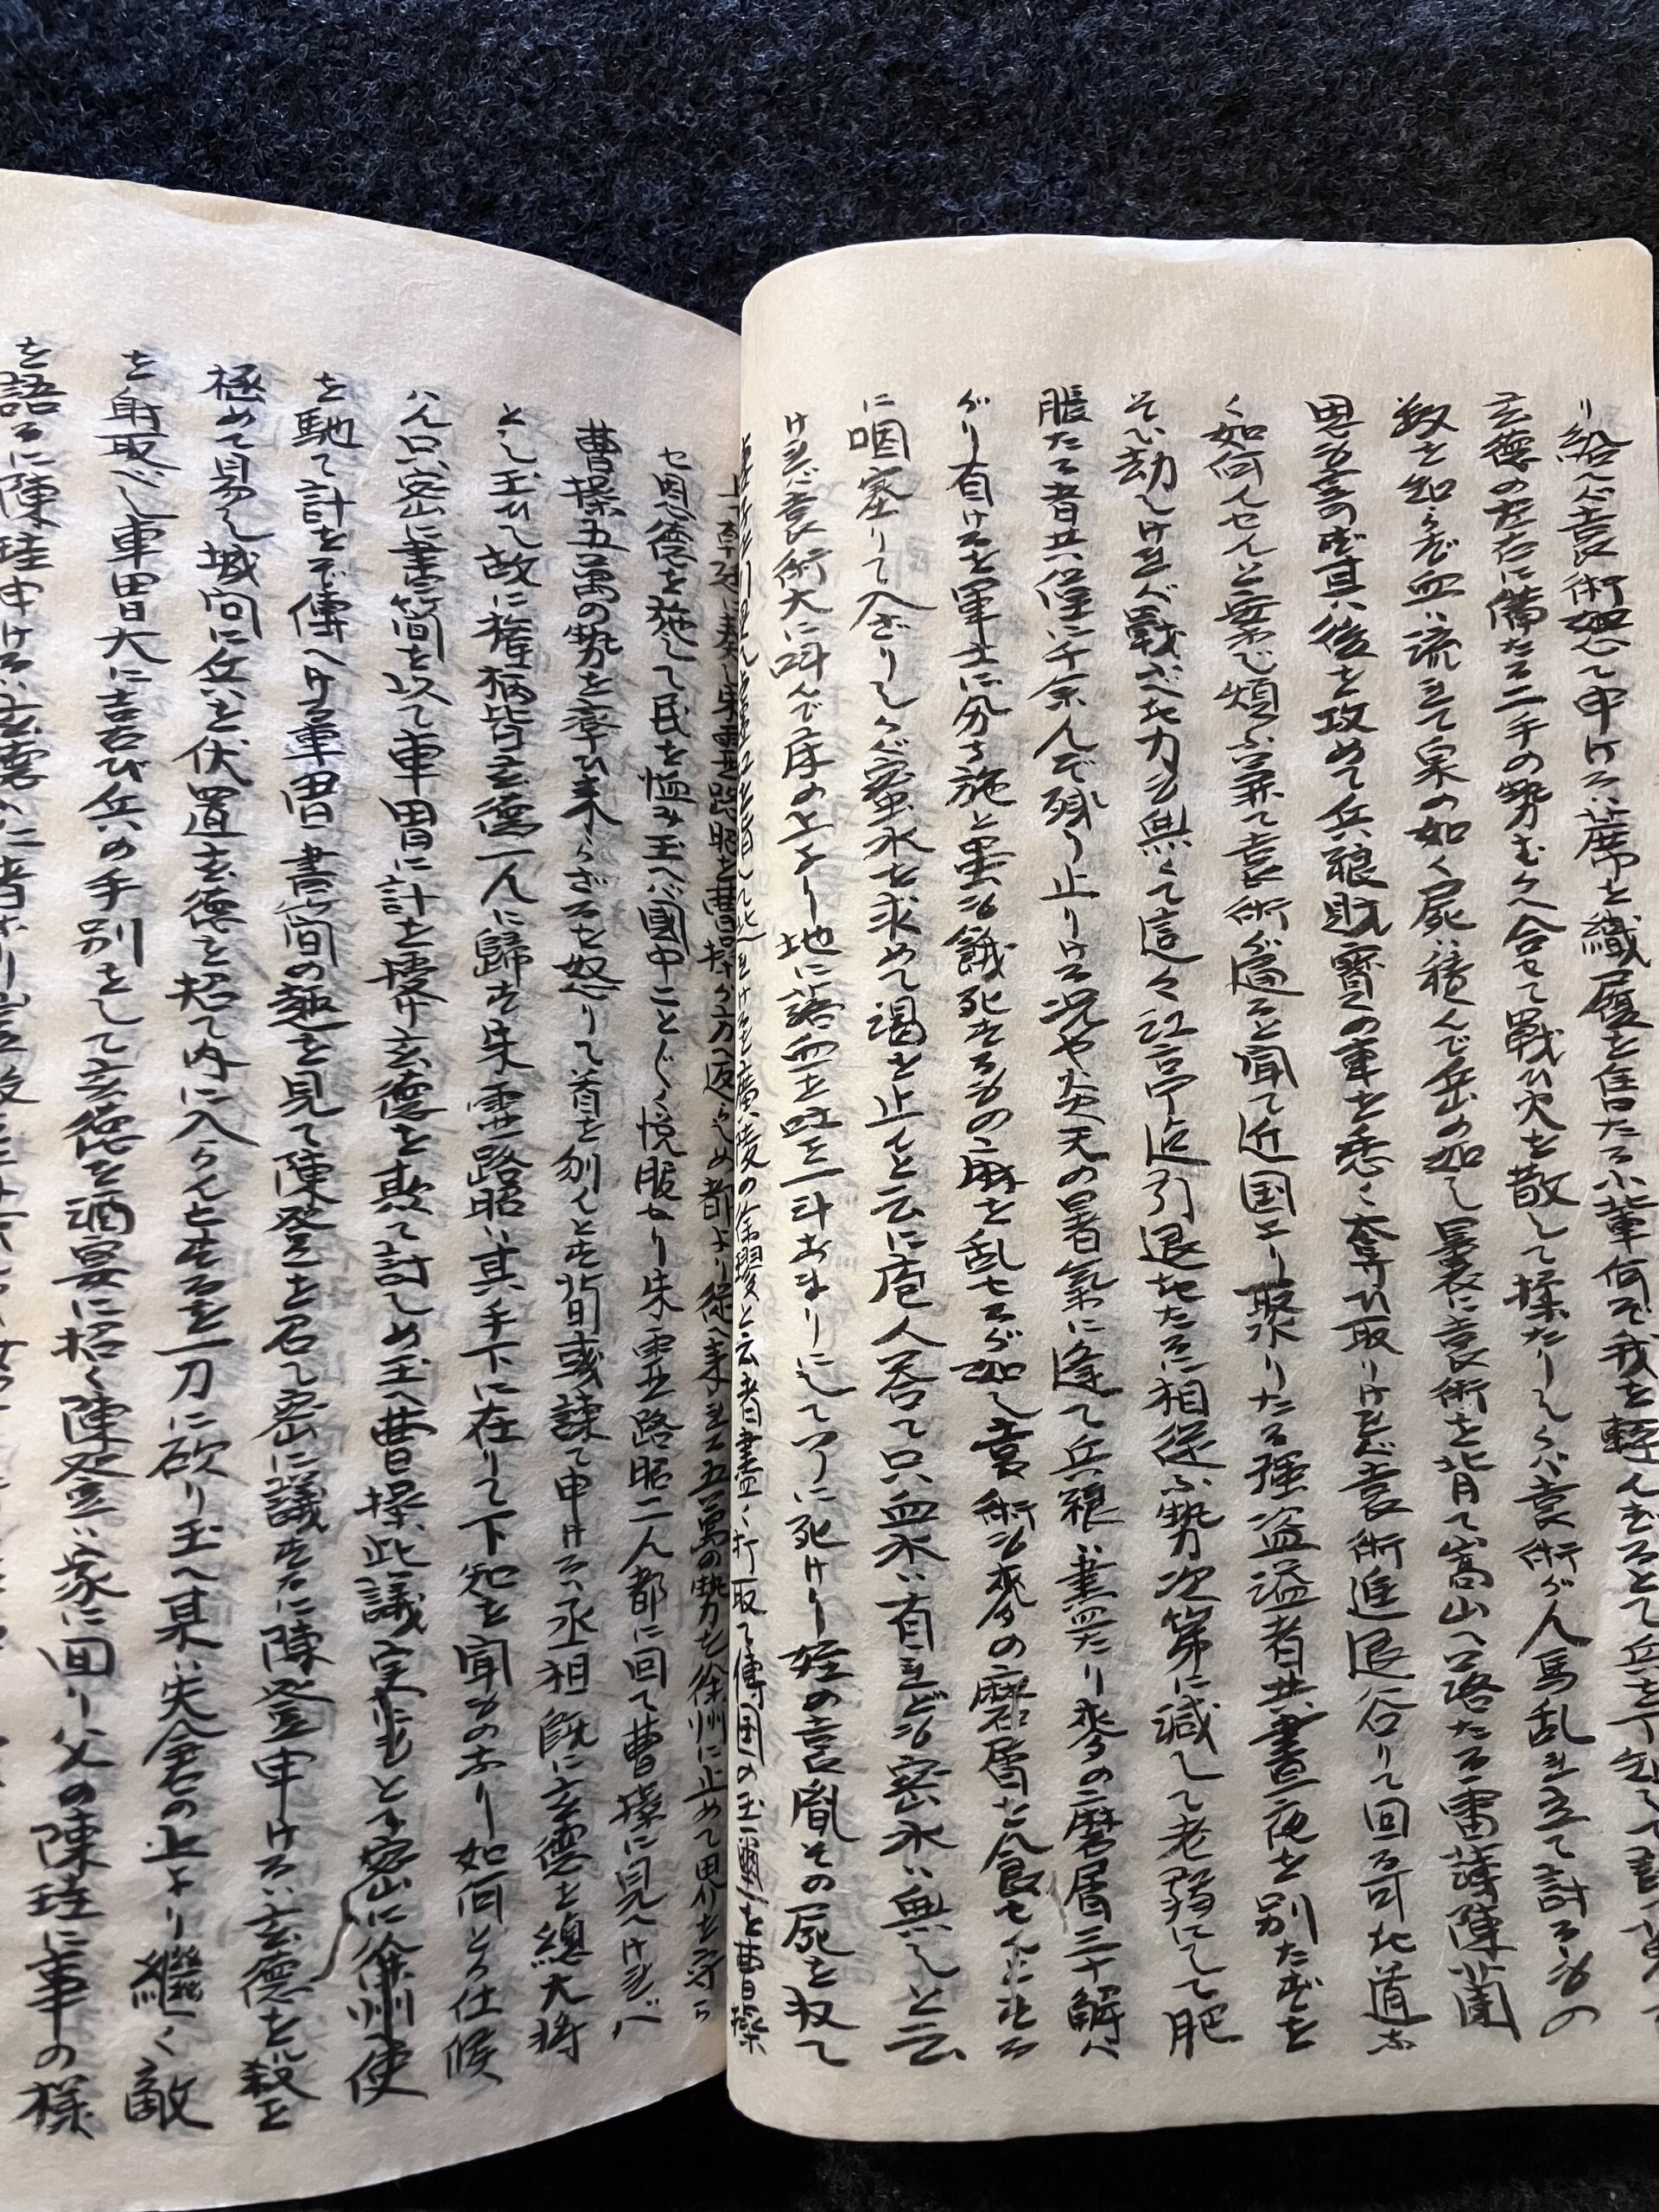 り給へバ袁術怒て申けるハ蓆を織履を作たる小輩何ぞ我を軽んずるとて兵を下知して
玄徳の左右に備たる二手の勢むかへ合せて戦ひ火を散して揉たりしかバ袁術が人馬乱れ立て討るゝもの
数を知らず血ハ流れて泉の如く屍ハ積んで岳の如し裏に袁術を背て嵩山へ落たる雷薄陳蘭
思も寄ず其後を攻めて兵粮財寳の車を悉く奪ひ取りけれバ袁術進退谷りて回る可き道な
く如何んせんと案じ煩ふ兼て袁術が通ると聞て近国より聚りたる強盗溢者共昼夜を別たずを
そい劫しけれバ戦べき力も無くて這々江亭迠引退きたるに相従ふ勢次第に減して老弱にして肥
脹たる者共僅に千余人ぞ残り止りける況や炎天の暑氣に逢て兵粮ハ盡たり麥の磨屑三十觧バ
がり有けるを軍士に分ち施と雖も餓死するもの麻を乱せるが如し袁術も麥の磨屑を食せんとする
に咽塞りて入ざりしかバ蜜水を求めて渇を止んと云に庖人荅て只血水ハ有れども密水ハ無しと云
けれバ袁術大に呌んで床の上より地に落血を吐こと一斗あまりにして ツイに死けり姪の袁胤その屍を収て
廣陵の徐璆と云者盡く打取て傳国の玉璽を曹操
路昭を曹操が方へ返らしめ都より従へ来れる五萬の勢を徐州に止めて界を守ら
せ恩徳を施して民を恤み玉へバ國中ことごとく悦服せり朱霊路昭二人都に回て曹操に見へけれバ
曹操五萬の勢を率ひ来らざるを怒りて首を刎んとす荀彧諫て申けるハ丞相既に玄徳を總大将
とし玉ひて故に権柄皆玄徳一人に歸す朱霊路昭ハ其手下に在りて下知を聞ものなり如何とも仕候
ハん只密に書簡を以て車冑に計を授け玄徳を欺て討しめ玉へ曹操此議実にもとて密に徐州へ使
を馳て計をぞ傳へける車冑書簡の趣を見て陳登を召て密に議するに陳登申けるハ玄徳を殺を
極めて易し城向に兵を伏置玄徳を招て内に入らんとするを一刀に砍り玉へ某ハ矢倉の上より継く敵
を射取べし車冑大に喜び兵の手別をして玄徳を酒宴に招く陳登ハ家に回り父の陳珪に事の様
を語るに陳珪申けるハ玄徳ハ仁者なり